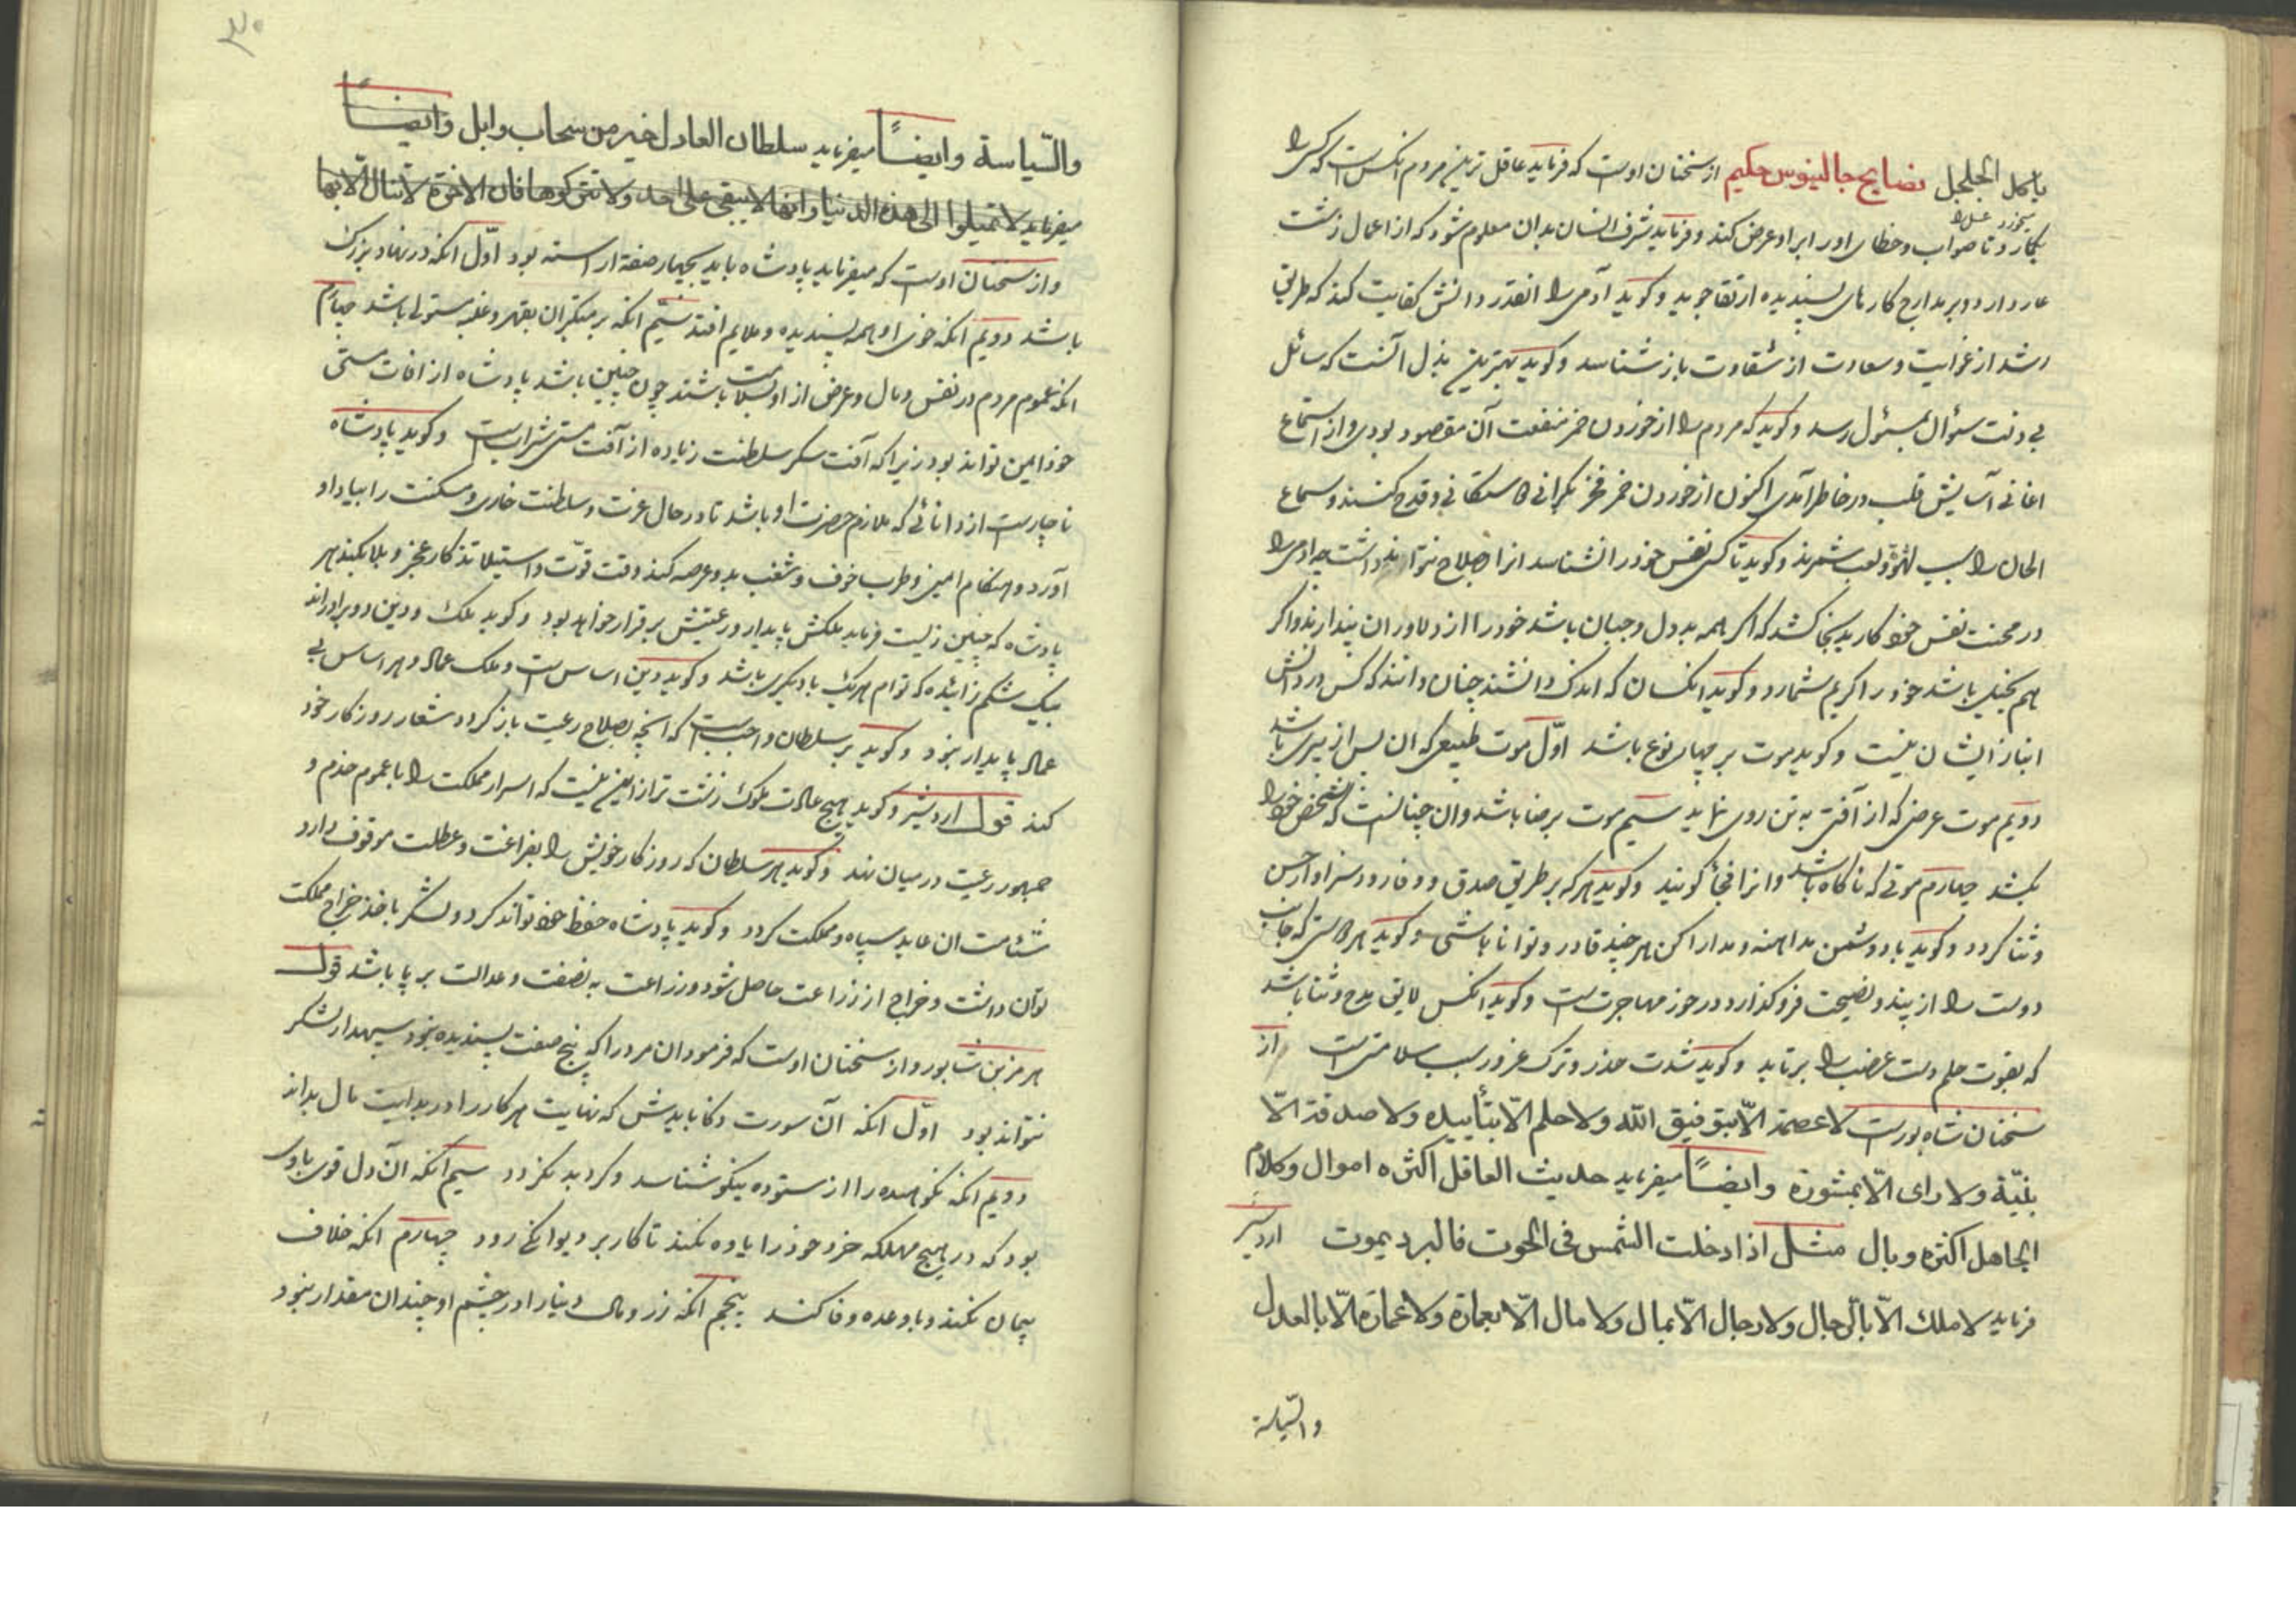 نصایح جالینوس حکیم از سخنان اوست که فرماید عاقل ترین مردم انکس است که کسی را
بکمارد تا صواب و خطای او را براو عرض کند و فرماید شرف انسان بدان معلوم شود که از اعمال زشت
عار دارد و بر مدارج کارهای پسندیده ارتقا جوید و کوید آدمی را انقدر دانش کفایت کند که طریق
رشد از غوایت و سعادت از شقاوت باز شناسد و کوید بهترین بذل آنست که سائل
بی ذلت سؤال بمسئول رسد و کوید که مردم را از خوردن خمر منفعت آن مقصود بودی و از استماع
اغانی آسایش قلب در خاطر آمدی اکنون از خوردن خمر فخر بکرانی کاستکانی و قدح کنند و سماع
الحان را سبب لهو و لعب شمرند و کوید تا کسی نفس خود را نشناسد انرا اصلاح نتواند داشت چه ادمی را
در محبت نفس خود کار بدینجا کشد که اکر همه بددل و جبان باشد خود را از دلاوران پندارد و اکر
هم بخیل باشد خود را کریم شمارد و کوید انکسان که اندک دانشند چنان دانند که کس در دانش
انباز ایشان نیست و کوید موت بر چهار نوع باشد اوّل موت طبیعی که ان پس از پیری باشد
دویم موت عرضی که از آفتی به تن روی نماید سیم موت برضا باشد و ان چنانست که شخص خود را
بکشد چهارم موتی که ناکاه باشد و انرا فجأ کویند و کوید هر که بر طریق صدق و وفا رود سزاوار حسن
و ثنا کردد و کوید با دشمن مداهنه و مدارا کن هر چند قادر و توانا باشی و کوید هر کس که جانب
دوست را از پند و نصیحت فرو کذارد در خور مهاجرت است و کوید انکس لایق مدح و ثنا باشد
که بقوت حلم دست غضب را برتابد و کوید شدت حذر و ترک غرور سبب سلامتی است از
سخنان شاپورست لا عصمة الّا بتوفیق الله ولا حلم الّا بتأییده ولا صدقة الّا
بنیّة ولا رای الّا بمشورة وایضاً میفرماید حدیث العاقل اکثره اموال وکلام
الجاهل اکثره وبال مثل اذا دخلت الشمس فی الحوت فالبرد یموت اردشیر
فرماید لا ملك الّا بالرّجال ولا رجال الّا بمال ولا مال الّا بعمارة ولا عمارة الّا بالعدل
والسّیاسة
والسّیاسة وایضاً میفرماید سلطان العادل خیر من سحاب وابل وایضاً
میفرماید لا تمیلوا الی هذه الدنیا وانها لا یبقی علی احد ولا تترکوها فان الاخرة لا تنال الّا بها
و از سخنان اوست که میفرماید پادشاه باید بچهار صفة اراسته بود اوّل انکه در نهاد بزرك
باشد دویم انکه خوی او همه پسندیده و ملایم افتد سیّم انکه بر متکبران بقهر و غلبه مستولی باشد چهارم
انکه عموم مردم در نفس و مال و عرض از او بسلامت باشند چون چنین باشد پادشاه از افات مستی
خود ایمن تواند بود زیرا که آفت سکر سلطنت زیاده از آفت مستی شراب است و کوید پادشاه
ناچارست از دانائی که ملازم حضرت او باشد تا در حال عزت و سلطنت خاری و مسکنت را بیاد او
آورد و هنکام امین و طرب خوف و شغب بدو عرضه کند وقت قوّت و استیلا تذکار عجز و بلا بکند هر
پادشاه که چنین زیست فرماید ملکش پایدار و رعیتش برقرار خواهد بود و کوید ملك و دین دو برادراند
بیك شکم زائیده که توام هر یك با دیکری باشد و کوید دین اساس است و ملك عماد و هر اساس بی
عماد پایدار نبود و کوید بر سلطان واجب است که انچه بصلاح رعیت باز کردد شعار روزکار خود
کند قول اردشیر و کوید هیچ عادت ملوك زشت تر از این نیست که اسرار مملکت را با عموم خدم و
جمهور رعیت در میان نهد و کوید هر سلطان که روزکار خویش را بفراغت و عطلت موقوف دارد
شئامت ان عاید سپاه و مملکت کردد و کوید پادشاه حفظ خود تواند کرد و لشکر باخذ خراج مملکت
توان داشت و خراج از زراعت حاصل شود و زراعت به نصفت و عدالت بر پا باشد قول
هرمز بن شاپور و از سخنان اوست که فرمود ان مرد را که پنج صفت پسندیده نبود سپهدار لشکر
نتواند بود اوّل انکه آن سورت ذکا بایدش که نهایت هر کار را در بدایت مال بداند
دویم انکه نکوهیده را از ستوده نیکو شناسد و کرد بد نکردد سیم انکه آن دل قوی با وی
بود که در هیچ مهلکه خرد خود را یاوه نکند تا کار بر دیوانکی رود چهارم انکه خلاف
پیمان نکند و با وعده وفا کند پنجم انکه زر و مال دنیا را در چشم او چندان مقدار نبود